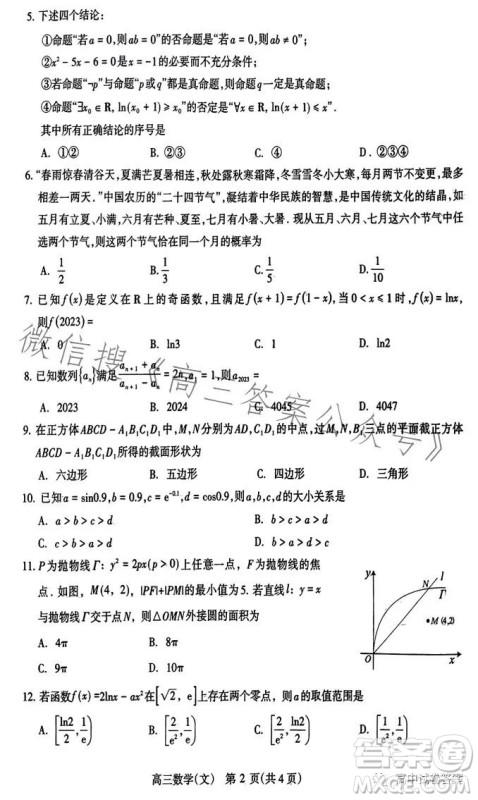 5. 下述四个结论:
①命题“若a=0,则ab=0”的否命题是“若a=0,则ab≠0”;
②x²-5x-6=0是x=-1的必要而不充分条件;
③若命题“¬p”与命题“p或q”都是真命题,则命题q一定是真命题;
④命题“∃x₀∈R, ln(x₀+1)≥x₀”的否定是“∀x∈R, ln(x+1)≤x”.
其中所有正确结论的序号是
A. ①② B. ②③ C. ③④ D. ②③④
6. “春雨惊春清谷天,夏满芒夏暑相连,秋处露秋寒霜降,冬雪雪冬小大寒,每月两节不变更,最多
相差一两天.”中国农历的“二十四节气”,凝结着中华民族的智慧,是中国传统文化的结晶,如
五月有立夏、小满,六月有芒种、夏至,七月有小暑、大暑. 现从五月、六月、七月这六个节气中任
选两个节气,则这两个节气恰在同一个月的概率为
A. 1/2 B. 1/3 C. 1/5 D. 1/10
7. 已知f(x)是定义在R上的奇函数,且满足f(x+1)=f(1-x),当0<x≤1时,f(x)=lnx,
则f(2023)=
A. 0 B. ln3 C. 1 D. ln2
8. 已知数列{aₙ}满足(aₙ₊₁+aₙ)/(aₙ₊₁-aₙ)=2n,a₁=1,则a₂₀₂₃=
A. 2023 B. 2024 C. 4045 D. 4047
9. 在正方体ABCD-A₁B₁C₁D₁中,M,N分别为AD,C₁D₁的中点,过M,N,B₁三点的平面截正方体
ABCD-A₁B₁C₁D₁所得的截面形状为
A. 六边形 B. 五边形 C. 四边形 D. 三角形
10. 已知a=sin0.9,b=0.9,c=e⁻⁰·¹,d=cos0.9,则a,b,c,d的大小关系是
A. a>b>c>d B. b>c>a>d
C. c>b>a>d D. b>a>c>d
11. P为抛物线Γ: y²=2px(p>0)上任意一点,F为抛物线的焦
点. 如图,M(4,2),|PF|+|PM|的最小值为5. 若直线l: y=x
与抛物线Γ交于点N,则△OMN外接圆的面积为
A. 4π B. 8π
C. 9π D. 10π
y
N
l
Γ
M(4,2)
O
x
12. 若函数f(x)=2lnx-ax²在[√2, e]上存在两个零点,则a的取值范围是
A. [ln2/2, 1/e) B. [2/e², 1/e) C. [2/e², ln2/2] D. [1/e², 1/e)
高三数学(文) 第2页(共4页)
微信搜《高三答案公众号》
高中试卷答案